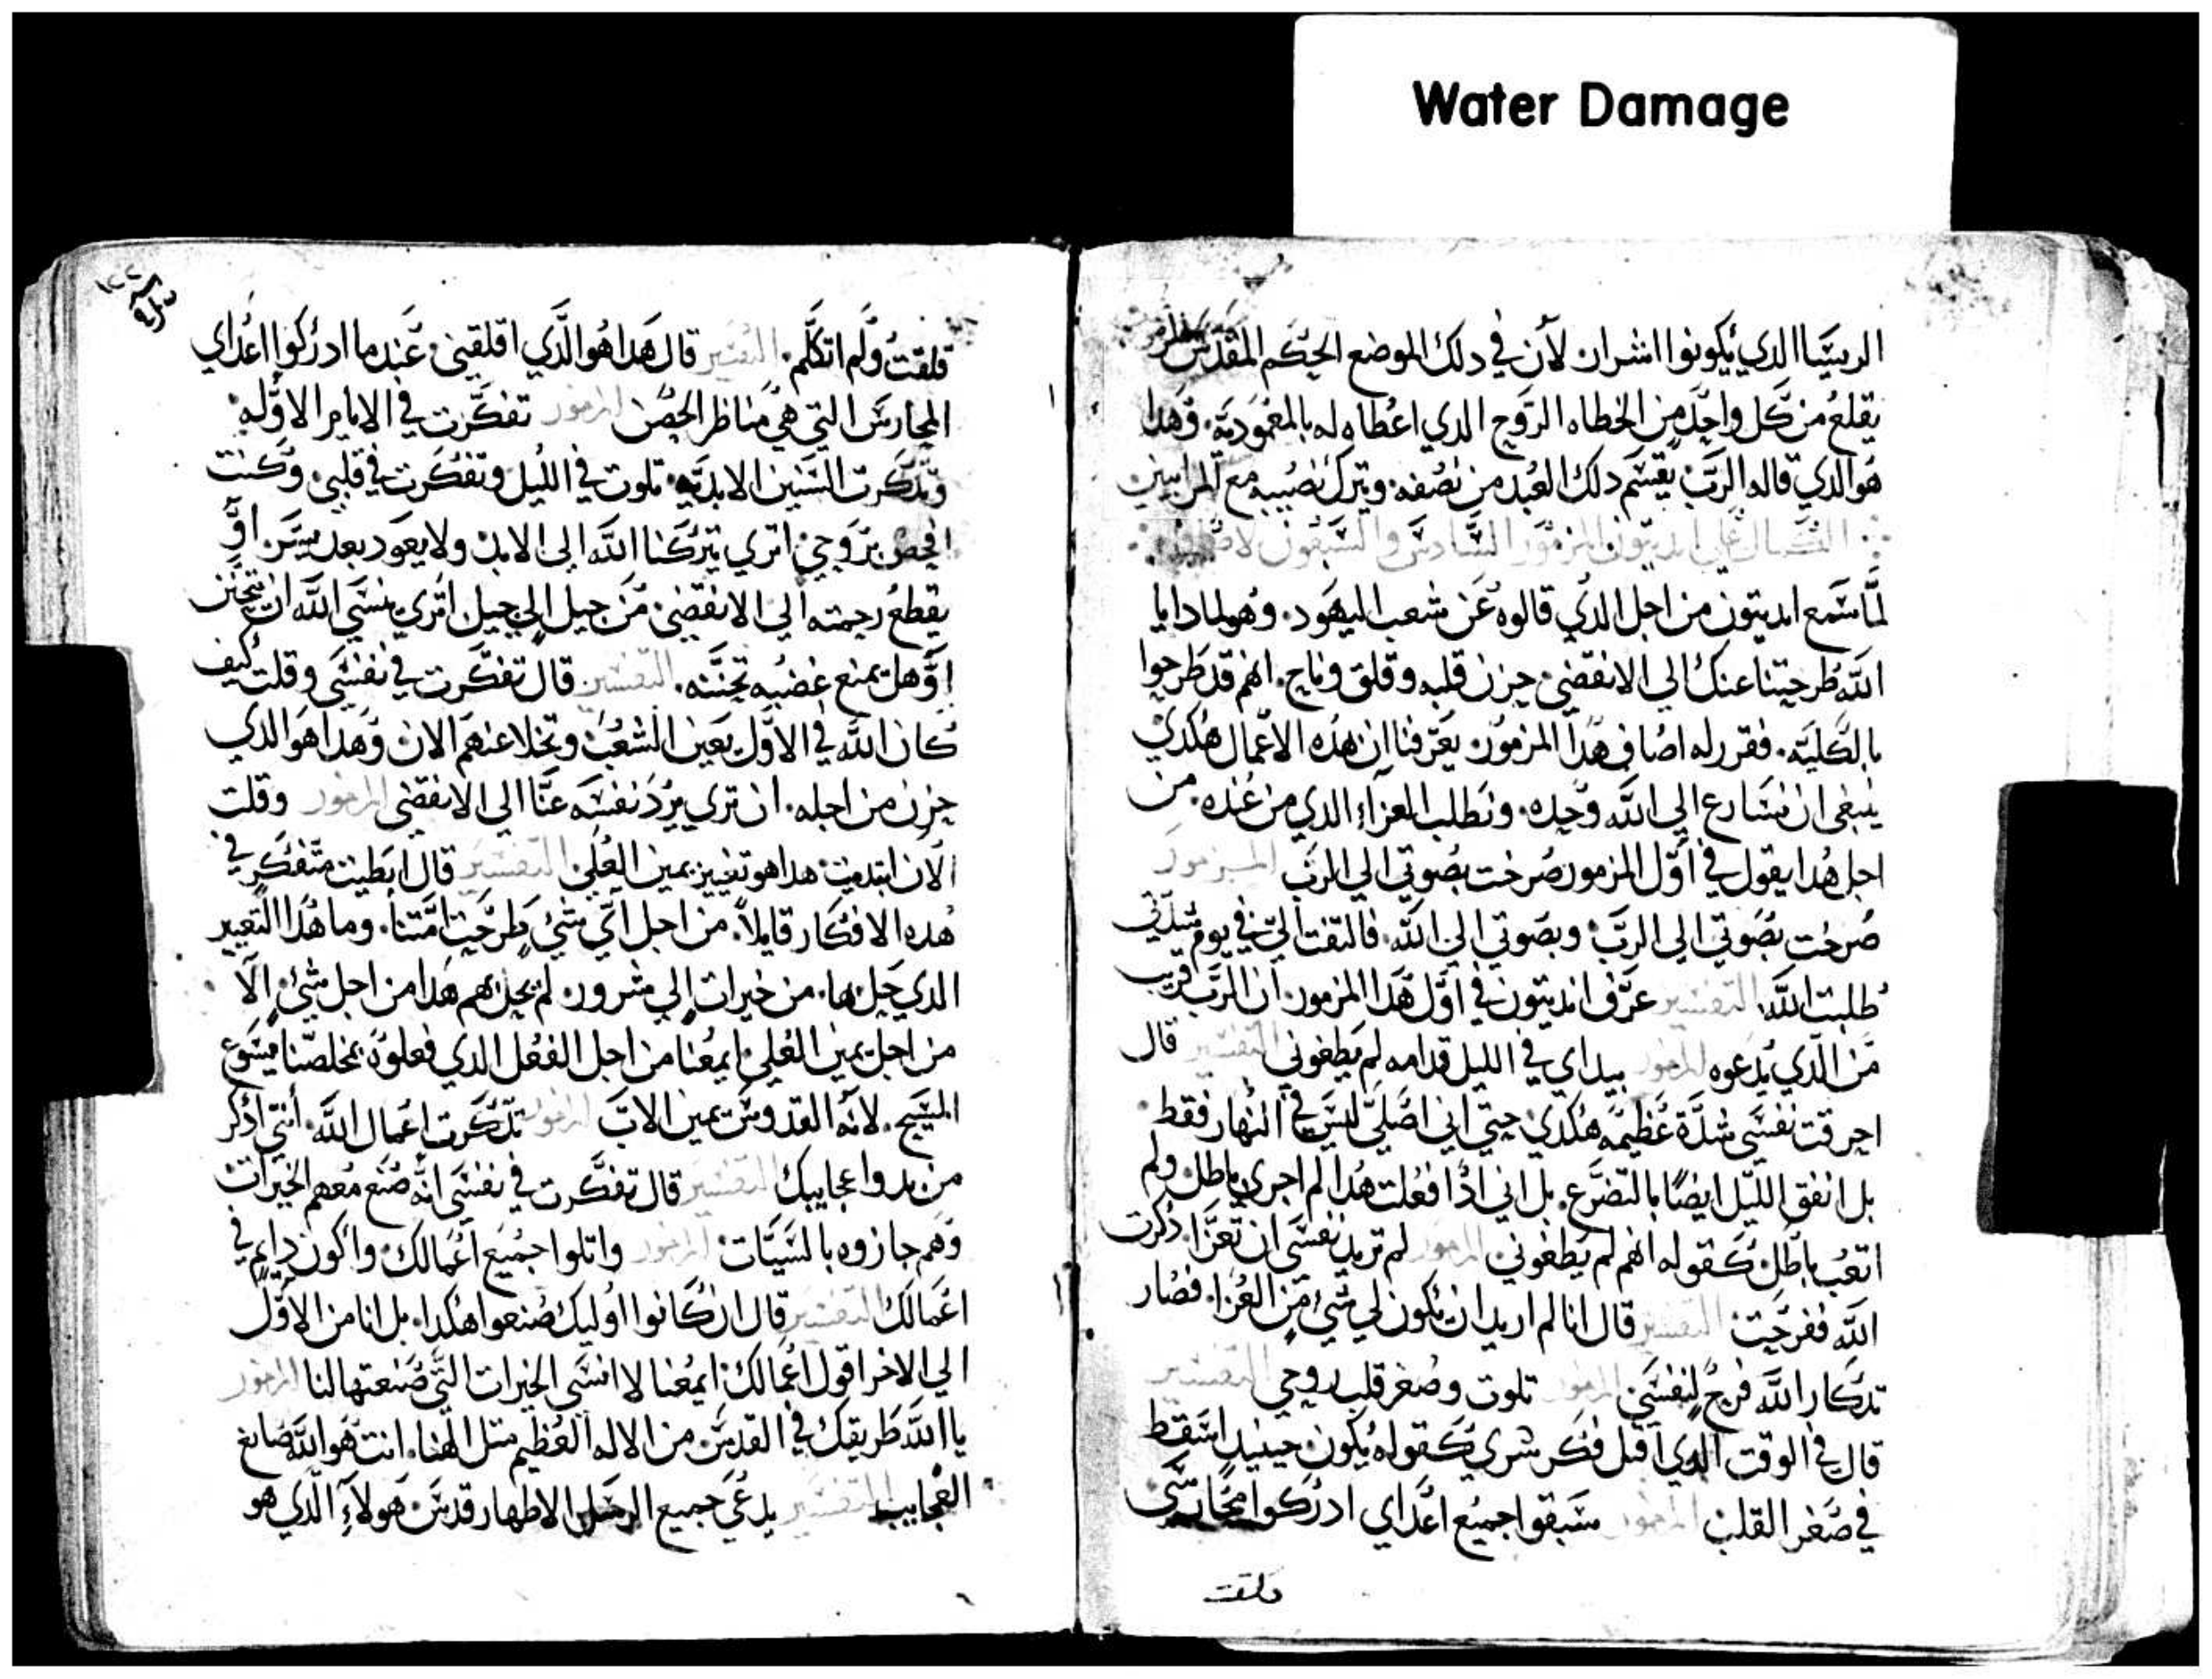 Water Damage
الريسا الدي يكونوا اشرار لان في دلك الموضع الحكم المقدس
يقلع من كل واحد من الخطاه الروح الدي اعطاه له بالمعموديه. وهدا
هو الدي قاله الرب يقسم دلك العبد من نصفه. ويترك نصيبه مع المرايين
الكمال علي ايديتون المزمور السادس والسبعون لاصاف
لما سمع ايديتون من اجل الدي قالوه عن شعب اليهود. وهو لمادا يا
الله طرحتنا عنك الي الانقضي حزن قلبه وقلق وناح. انهم قد طرحوا
بالكليه. فقرر له اصاف هدا المزمور يعرفنا ان هده الاعمال هكدي
ينبغي ان نسارع الي الله وحده. ونطلب العزاء الدي من عنده. من
اجل هدا يقول في اول المزمور صرخت بصوتي الي الرب المزمور
صرخت بصوتي الي الرب وبصوتي الي الله. فالتفت الي في يوم شدتي
طلبت الله التفسير عرف ايديتون في اول هدا المزمور ان الرب قريب
من الدي يدعوه المزمور بيداي في الليل قدامه لم يطغوني التفسير قال
احرقت نفسي شدة عظيمه هكدي حتي اني اصلي ليس في النهار فقط
بل انفق الليل ايضا بالتضرع. بل اني ادا فعلت هدا لم اجري باطل ولم
اتعب باطل كقوله انهم لم يطغوني المزمور لم تريد نفسي ان تعزا. دكرت
الله ففرحت التفسير قال انا لم اريد ان يكون لي شي من العزا. فصار
تدكار الله فرح لنفسي المزمور تلوت وصغر قلب روحي التفسير
قال في الوقت الدي اقبل فكر شري كقوله يكون حينيد اسقط
في صغر القلب المزمور سبقوا جميع اعداي ادركوا محارسي
قلقت
قلقت ولم اتكلم. التفسير قال هدا هو الدي اقلقني عند ما ادركوا اعداي
المحارس التي هي مناظر الحصن المزمور تفكرت في الايام الاوله
وتدكرت السنين الابديه. تلوت في الليل وتفكرت في قلبي وكنت
افحص بروحي اتري يتركنا الله الي الابد ولا يعود بعد يسر. او
يقطع رحمته الي الانقضي من جيل الي جيل اتري ينسي الله ان يتحنن
او هل يمنع غضبه تحننه. التفسير قال تفكرت في نفسي وقلت كيف
كان الله في الاول يعين الشعب وتخلا عنهم الان وهدا هو الدي
حزن من اجله. ان تري يرد نفسه عنا الي الانقضي المزمور وقلت
الان ابتديت هدا هو تغيير يمين العلي التفسير قال ابطيت متفكر في
هده الافكار قايلا. من اجل اي شي طرحت امتنا. وما هدا التغيير
الدي حل بها. من خيرات الي شرور. لم يحل بهم هدا من اجل شي الا
من اجل يمين العلي ايمعنا من اجل الفعل الدي فعلوه بمخلصنا يسوع
المسيح. لانه القدوس يمين الاب المزمور تدكرت اعمال الله. انني ادكر
من بدوا عجايبك التفسير قال تفكرت في نفسي انه صنع معهم الخيرات
وهم جازوه بالسيات المزمور واتلوا جميع اعمالك واكون دايم في
اعمالك التفسير قال ان كانوا اوليك صنعوا هكدا. بل انا من الاول
الي الاخر اقول اعمالك ايمعنا لا انسي الخيرات التي صنعتها لنا المزمور
يا الله طريقك في القدس. من الاله العظيم متل الهنا. انت هو الله صانع
العجايب التفسير يدعي جميع الرسل الاطهار قدس. هولاء الدي هو